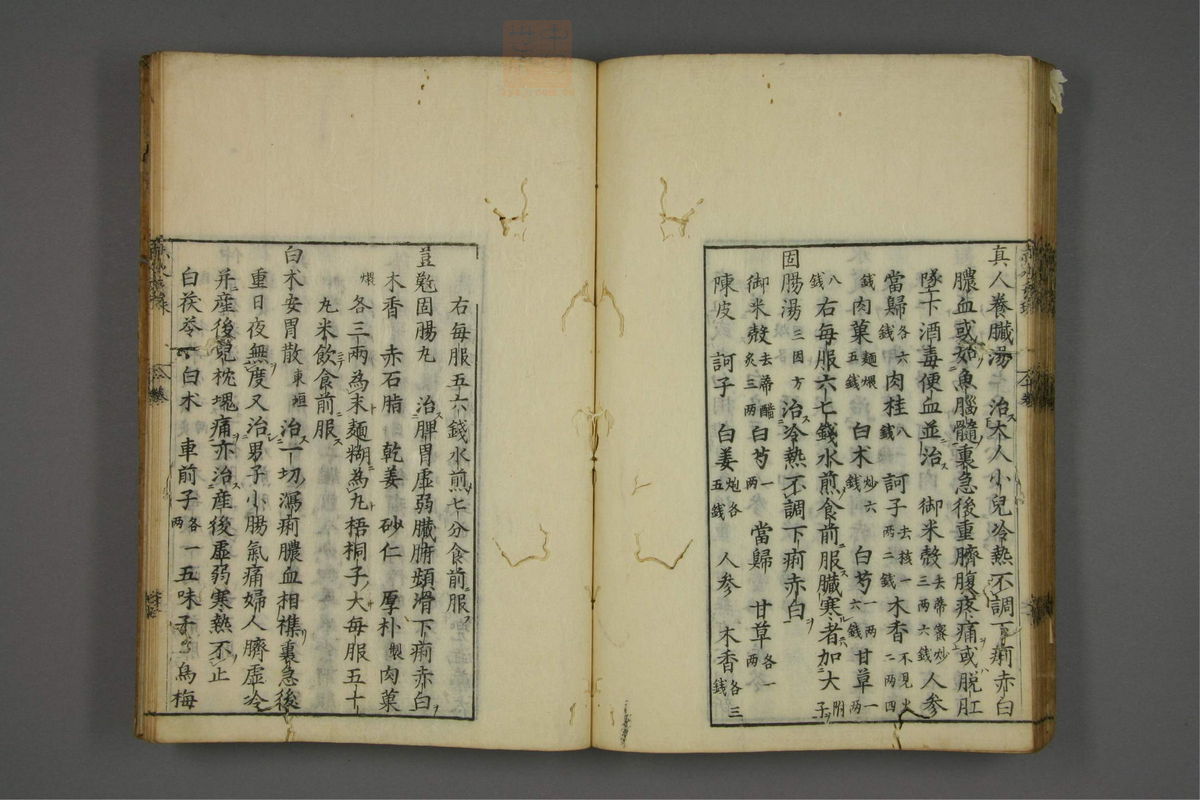 真人養臟湯 治大人小兒冷熱不調下痢赤白
膿血或如魚腦髓裏急後重臍腹疼痛或脱肛
墜下酒毒便血並治 御米殼去蒂蜜炒三两六錢人参
當歸各六錢肉桂八錢 訶子去核一两二錢木香不見火二两四
錢肉菓麵煨五錢 白术炒六錢 白芍一两六錢甘草一两
八錢右每服六七錢水煎食前服臟寒者加大附子
固腸湯三因方 治冷熱不調下痢赤白
御米殼去蒂醋炙三两白芍一两 當歸 甘草各一两
陳皮 訶子 白姜炮各五錢 人参 木香各三錢
右每服五六錢水煎七分食前服
荳蔲固腸丸 治脾胃虚弱臟腑頻滑下痢赤白
木香 赤石脂 乾姜 砂仁 厚朴製肉菓
煨各三兩為末麵糊為丸梧桐子大每服五十
丸米飲食前服
白术安胃散東垣 治一切瀉痢膿血相襍裏急後
重日夜無度又治男子小腸氣痛婦人臍虚冷
并産後兒枕塊痛亦治産後虚弱寒熱不止
白茯苓 白术 車前子各一两五味子 烏梅